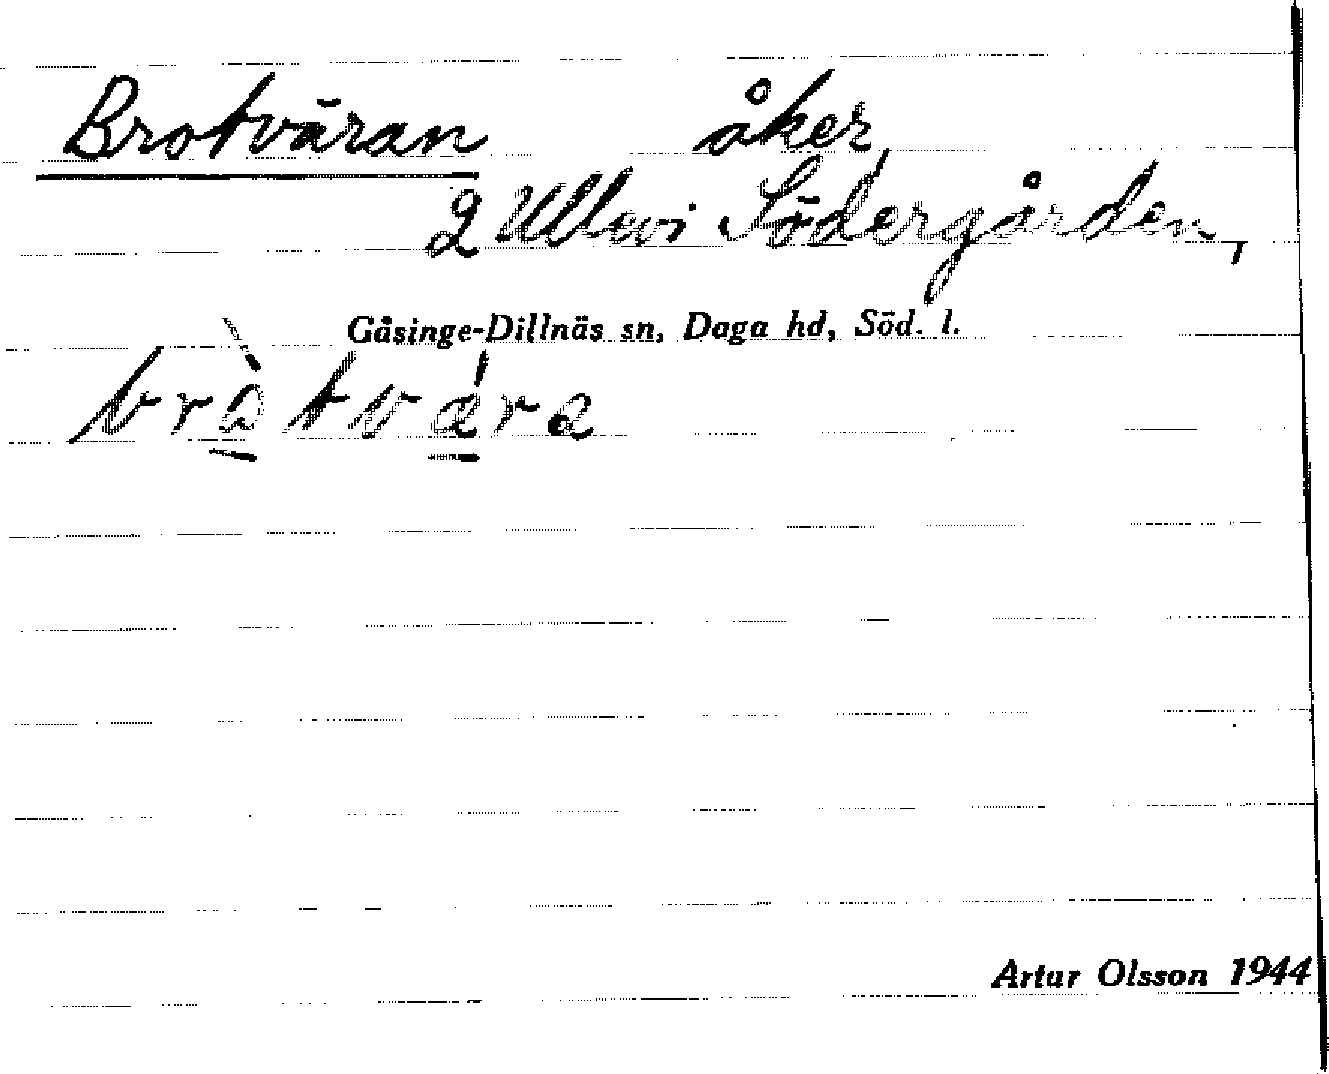 Brotväran åker,
2 Ullevi Södergården,
Gåsinge-Dillnäs sn, Daga hd, Söd. l.
Artur Olsson 1944